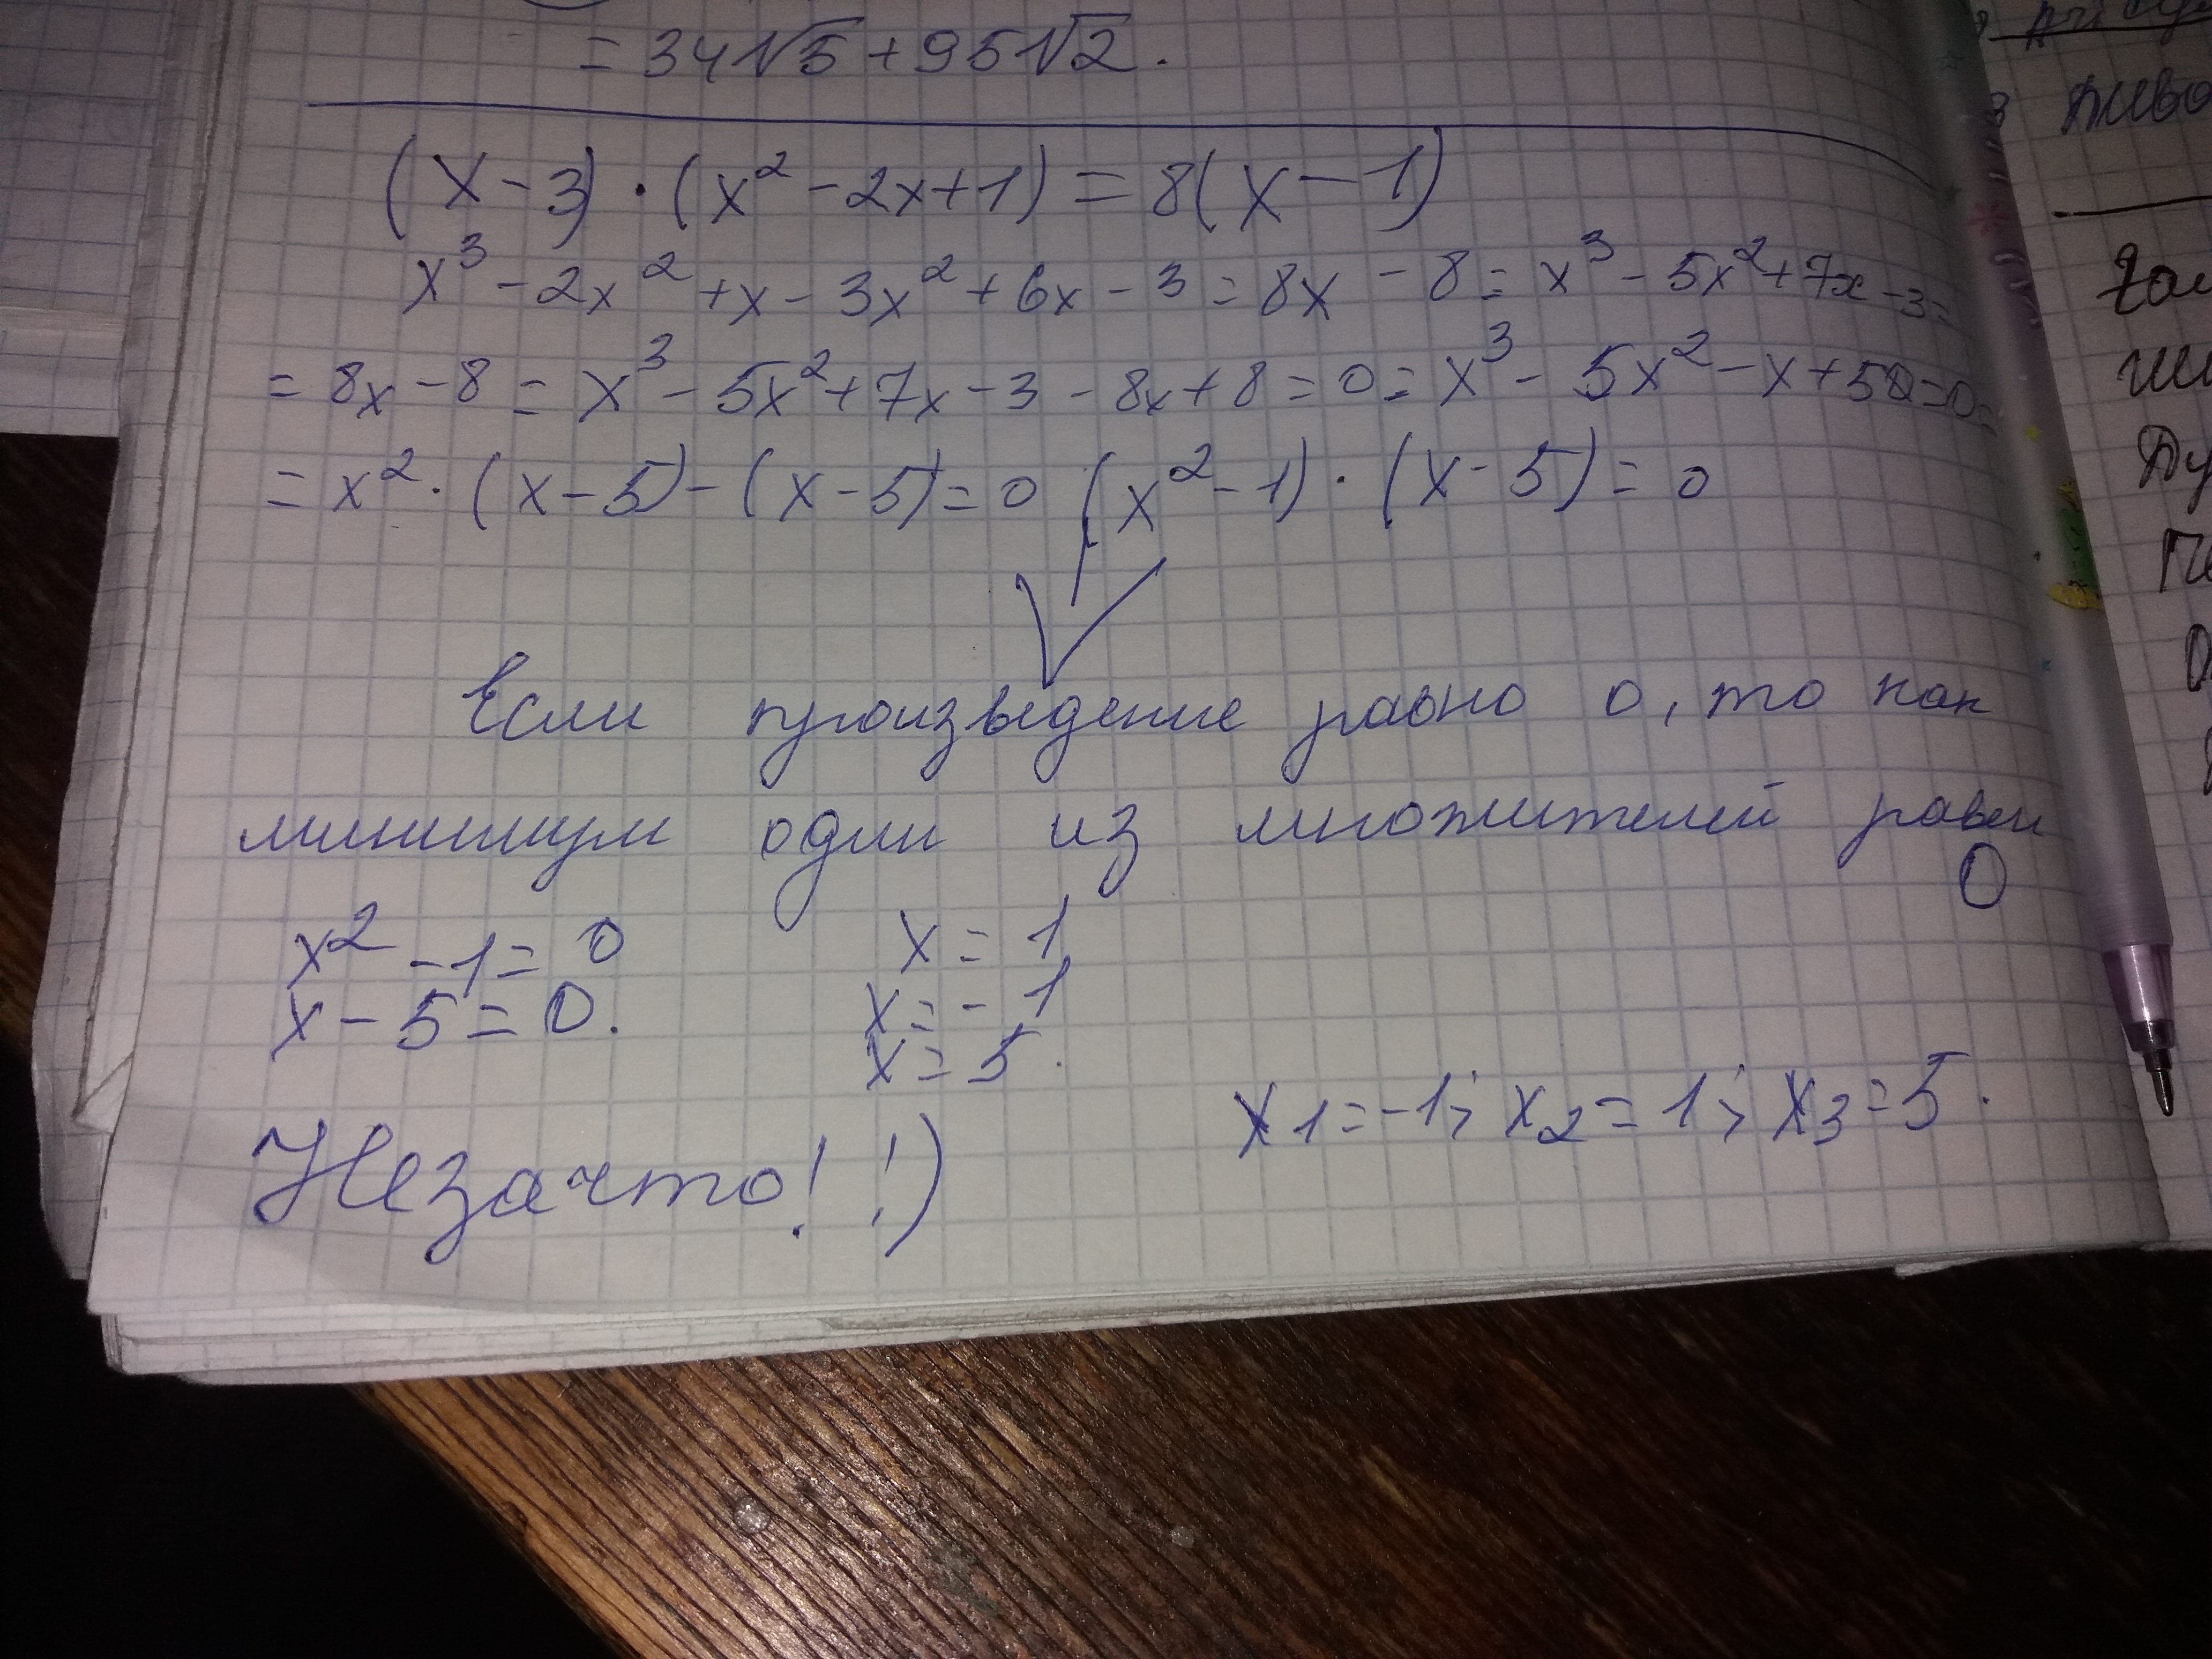 = 34√5 + 95√2.
(x - 3) · (x² - 2x + 1) = 8(x - 1)
x³ - 2x² + x - 3x² + 6x - 3 = 8x - 8 = x³ - 5x² + 7x - 3 =
= 8x - 8 = x³ - 5x² + 7x - 3 - 8x + 8 = 0 = x³ - 5x² - x + 5 = 0 =
= x² · (x - 5) - (x - 5) = 0 (x² - 1) · (x - 5) = 0
Если произведение равно 0, то как
минимум один из множителей равен
0
x² - 1 = 0
x - 5 = 0.
x = 1
x = - 1
x = 5.
x1 = -1; x2 = 1; x3 = 5.
Незачто! !)